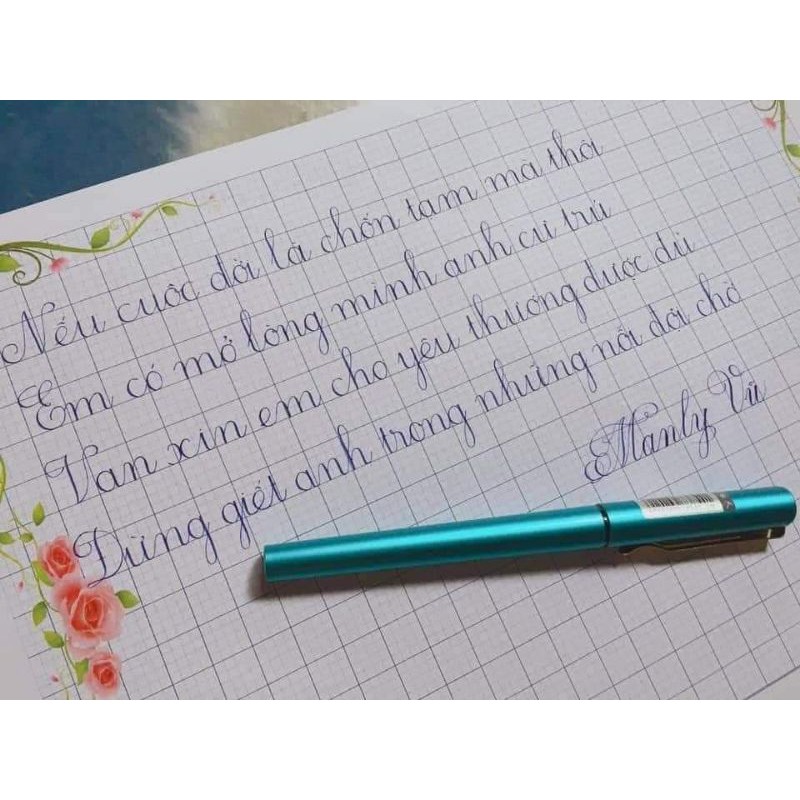 Nếu cuộc đời là chốn tạm mà thôi
Em có mở lòng mình anh cư trú
Van xin em cho yêu thương được đủ
Đừng giết anh trong những nỗi đợi chờ
Manly Vũ